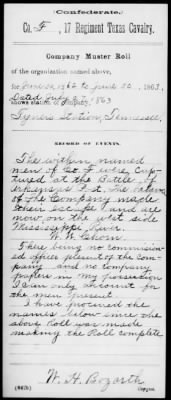 Confederate.
Co. F, 17 Regiment Texas Cavalry.
Company Muster Roll
of the organization named above,
for June 30, 1862 to June 30, 1863.
Dated July 27, 1863
shows station of company,
Tyners Station, Tennessee.
RECORD OF EVENTS.
The within named
men of Co. F were Cap-
tured at the Battle of
Arkansas Post. The balance
of the Company made
their escape and are
now on the west side
Mississippi River.
There being no commission-
ed officer present of the com-
pany and no company
papers in my possession
I can only account for
the men present.
I have procured the
names below since the
above Roll was made
making the Roll complete
W. H. Bozarth
Copyist.